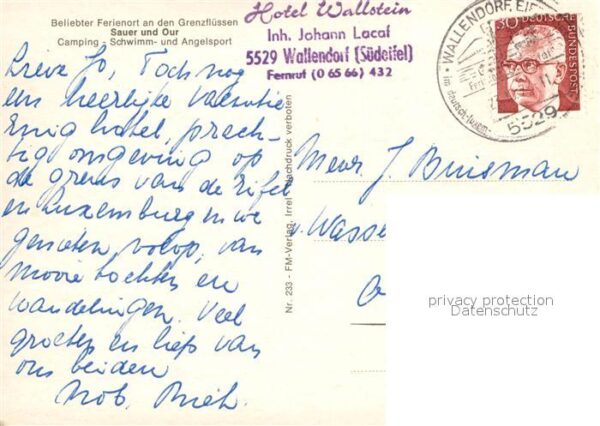 Beliebter Ferienort an den Grenzflüssen
Sauer und Our
Camping - Schwimm- und Angelsport
Hotel Wallstein
Inh. Johann Lacaf
5529 Wallendorf (Südeifel)
Fernruf (0 65 66) 432
WALLENDORF, EIFEL
5529
30 DEUTSCHE BUNDESPOST
Lieve Jo, Toch nog
een heerlijke vacantie
Enig hotel, prach-
tig omgeving op
de grens van de Eifel
en Luxemburg en we
genieten volop, van
mooie tochten en
wandelingen. Veel
groeten en liefs van
ons beiden
Nob.
Nr. 233 - FM-Verlag, Irrel Nachdruck verboten
Mevr. J. Buisman
v. Wasse
privacy protection
Datenschutz